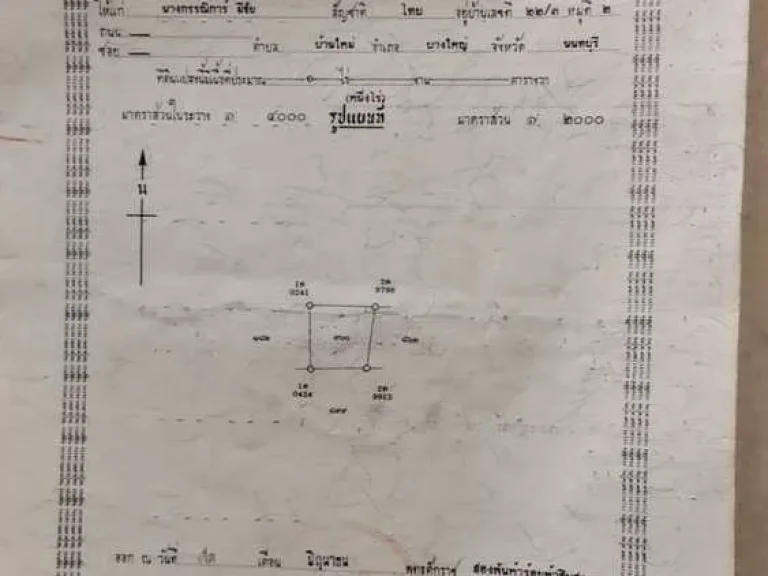 ให้แก่ นางกรรณิการ์ มีชัย สัญชาติ ไทย อยู่บ้านเลขที่ ๒๒/๓ หมู่ที่ ๒
ถนน
ซอย ตำบล บ้านใหม่ อำเภอ บางใหญ่ จังหวัด นนทบุรี
ที่ดินแปลงนี้มีเนื้อที่ประมาณ ๑ ไร่ งาน ตารางวา
(หนึ่งไร่)
มาตราส่วนในระวาง ๑ ๔๐๐๐ รูปแผนที่ มาตราส่วน ๑ ๒๐๐๐
น
1ต 2ต
0241 9798
1ต 2ต
0424
ออก ณ วันที่ เดือน มิถุนายน พุทธศักราช